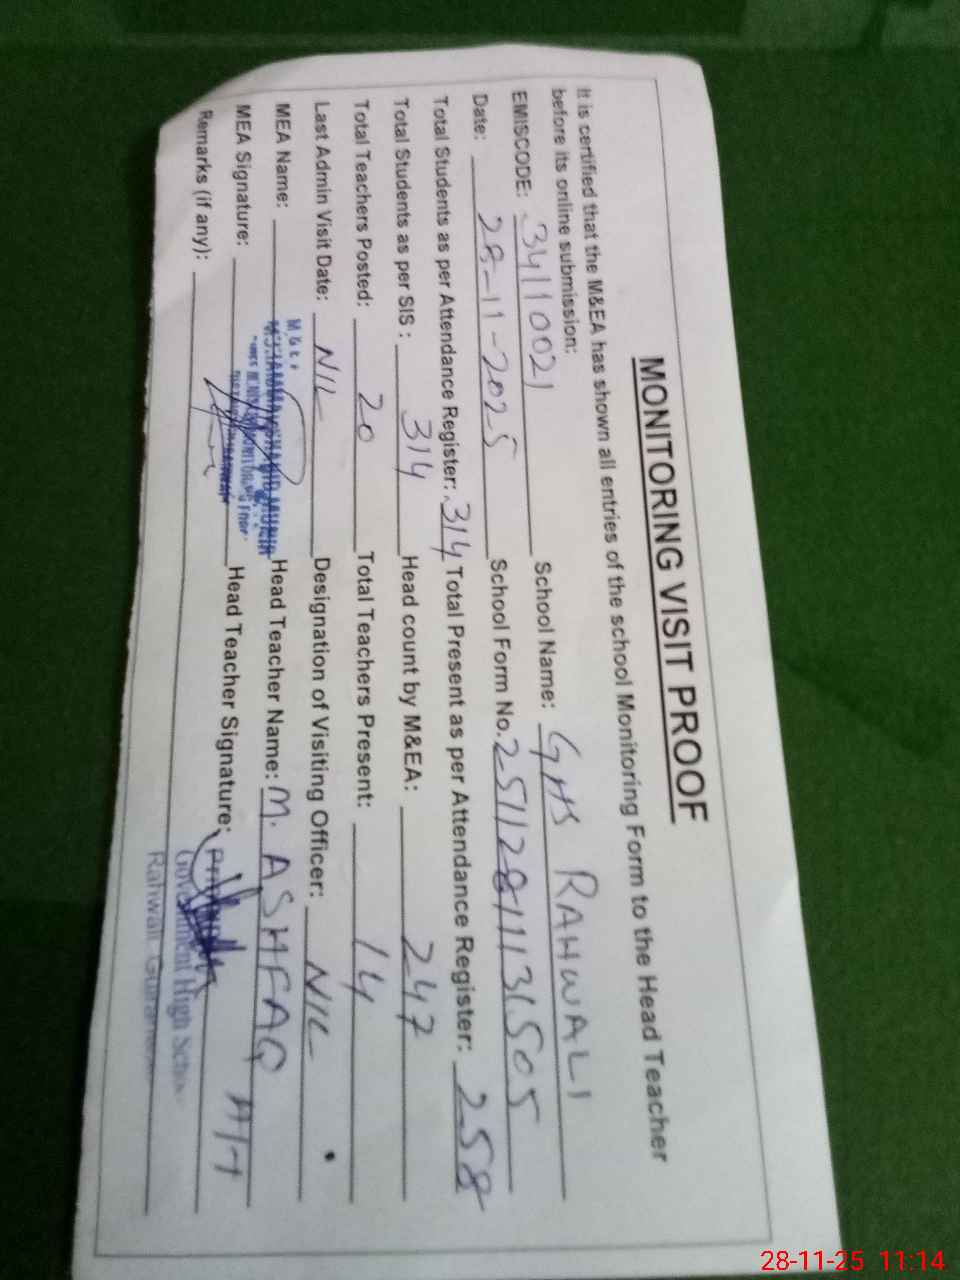 MONITORING VISIT PROOF
It is certified that the M&EA has shown all entries of the school Monitoring Form to the Head Teacher
before its online submission:
EMISCODE: 34110021 School Name: GHS RAHWALI
Date: 28-11-2025 School Form No. 251128111361505
Total Students as per Attendance Register: 314 Total Present as per Attendance Register: 258
Total Students as per SIS : 314 Head count by M&EA: 247
Total Teachers Posted: 20 Total Teachers Present: 14
Last Admin Visit Date: NIL Designation of Visiting Officer: NIL
MEA Name: Head Teacher Name: M. ASHFAQ
MEA Signature: Head Teacher Signature:
Remarks (if any):
Government High
Rahwali
28-11-25 11:14